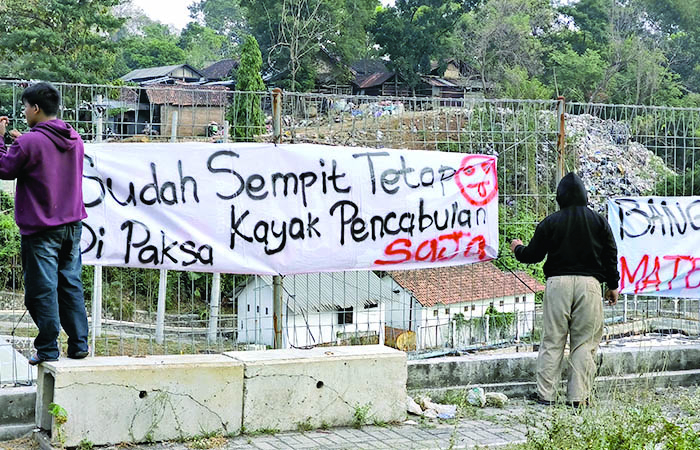 Sudah Sempit Tetap
Di Paksa Kayak Pencabulan
SAJA
BANG
MATE